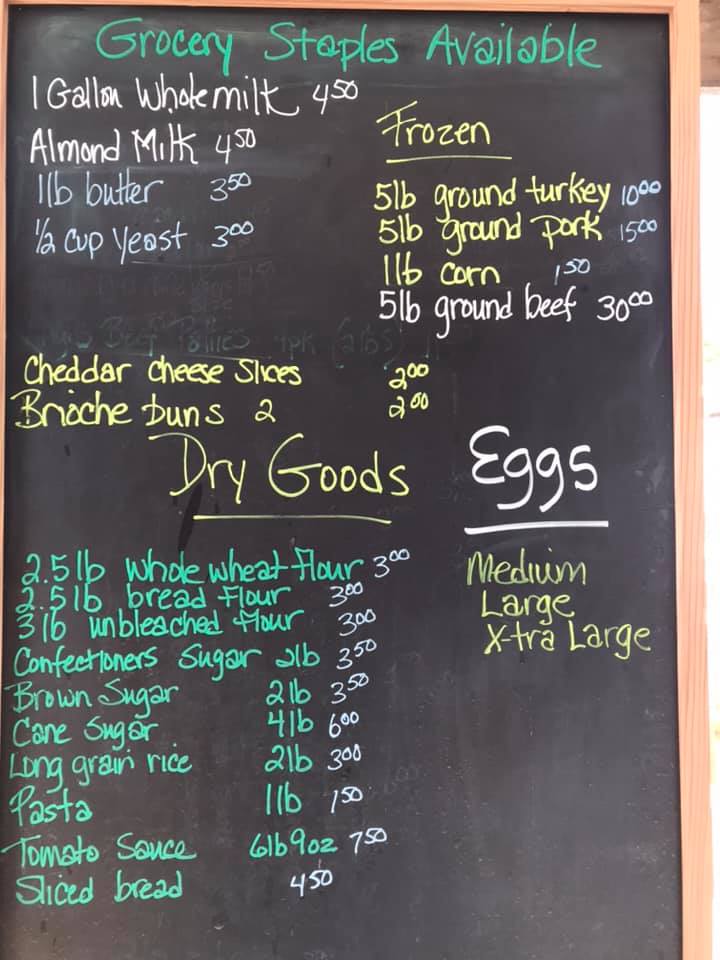 Grocery Staples Available
1 Gallon Whole milk 4.50
Almond Milk 4.50
1lb butter 3.50
1/2 cup yeast 3.00
Frozen
5lb ground turkey 10.00
5lb ground pork 15.00
1lb corn 1.50
5lb ground beef 30.00
Beef Patties 4pk (2lbs)
Cheddar cheese Slices 2.00
Brioche buns 2 2.00
Dry Goods
2.5lb whole wheat flour 3.00
2.5lb bread flour 3.00
3lb unbleached flour 3.00
Confectioners Sugar 2lb 3.50
Brown Sugar 2lb 3.50
Cane Sugar 4lb 6.00
Long grain rice 2lb 3.00
Pasta 1lb 1.50
Tomato Sauce 6lb9oz 7.50
Sliced bread 4.50
Eggs
Medium
Large
X-tra Large